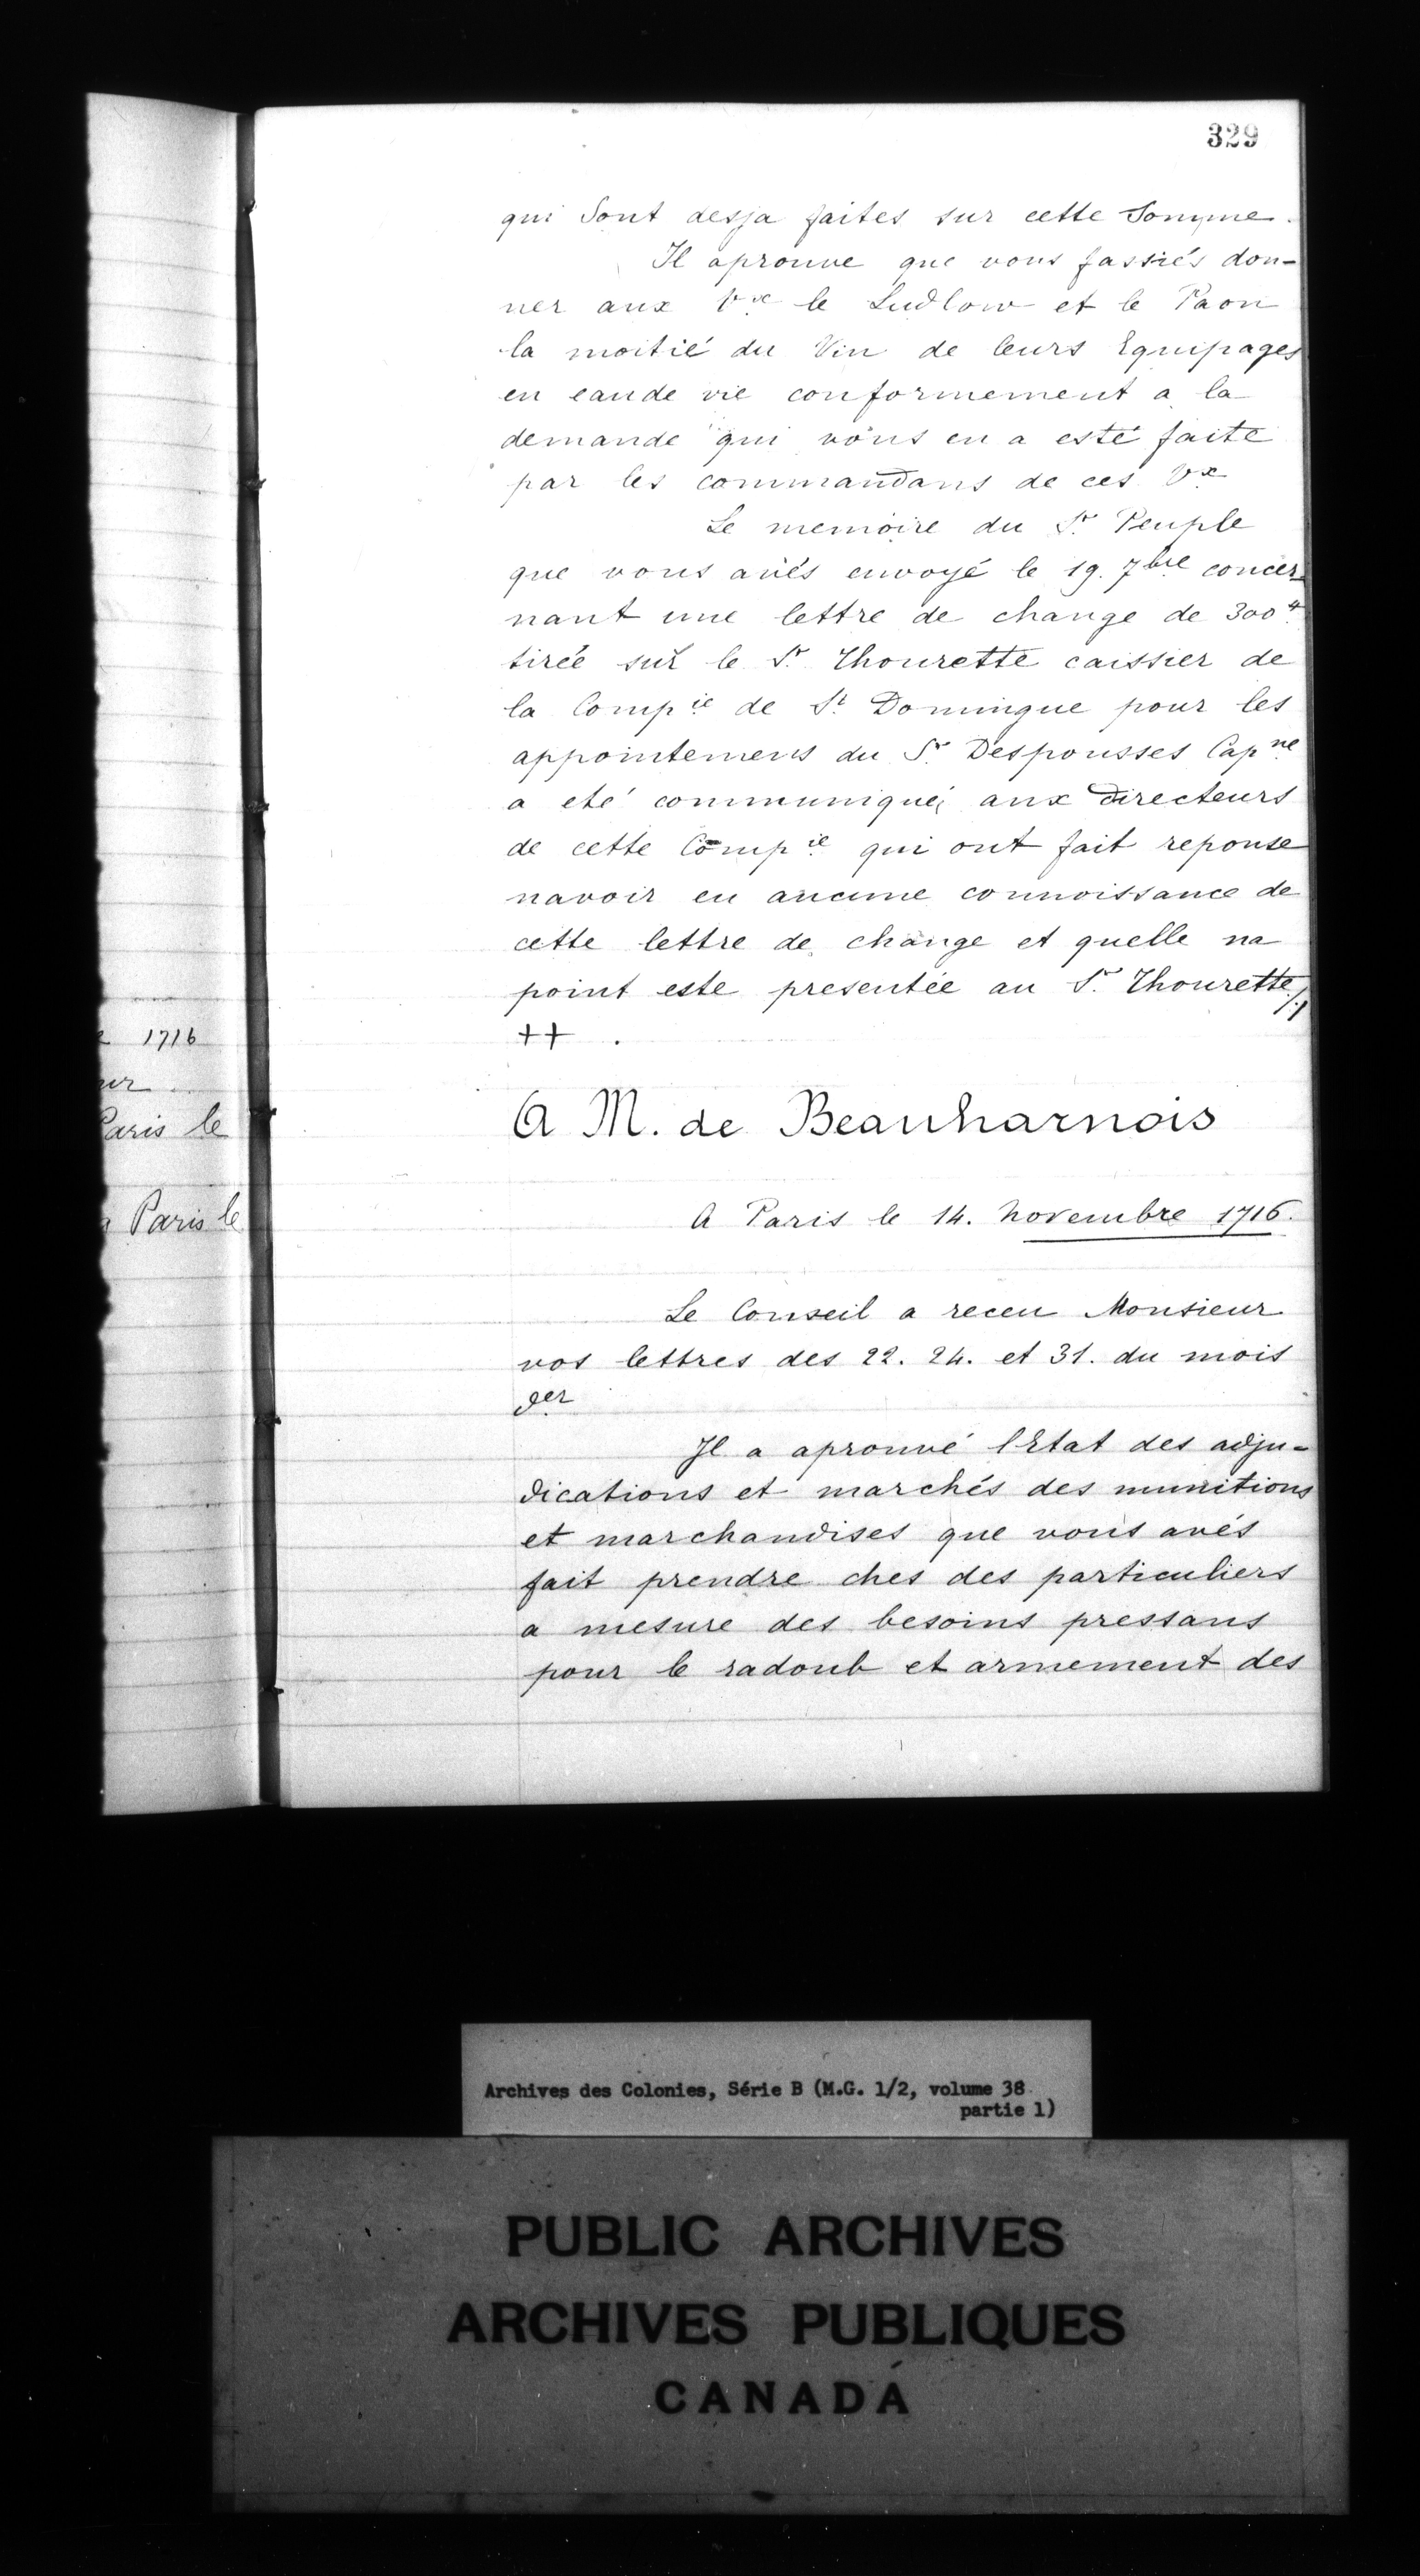 329
qui Sont desja faites sur cette Somme.
Il aprouve que vous fassiés don-
ner aux Vx le Ludlow et le Paon
la moitié du Vin de leurs Equipages
en eaude vie conformement a la
demande qui vous en a esté faite
par les commandans de ces Vx
Le memoire du Sr Peuple
que vous avés envoyé le 19. 7bre concer-
nant une lettre de change de 300#
tirée sur le Sr Thourette caissier de
la Compie de St Domingue pour les
appointemens du Sr Despousses Capne
a eté communiqué aux Directeurs
de cette Compie qui ont fait reponse
navoir eu aucune connoissance de
cette lettre de change et quelle na
point este presentée au Sr Thourette/.
++ .
A M. de Beauharnois
A Paris le 14. Novembre 1716.
Le Conseil a receu Monsieur
vos lettres des 22. 24. et 31. du mois
der
Il a aprouvé lEtat des adju-
dications et marchés des munitions
et marchandises que vous avés
fait prendre ches des particuliers
a mesure des besoins pressans
pour le radoub et armement des
1716
Paris le
Paris le
Archives des Colonies, Série B (M.G. 1/2, volume 38
partie 1)
PUBLIC ARCHIVES
ARCHIVES PUBLIQUES
CANADA